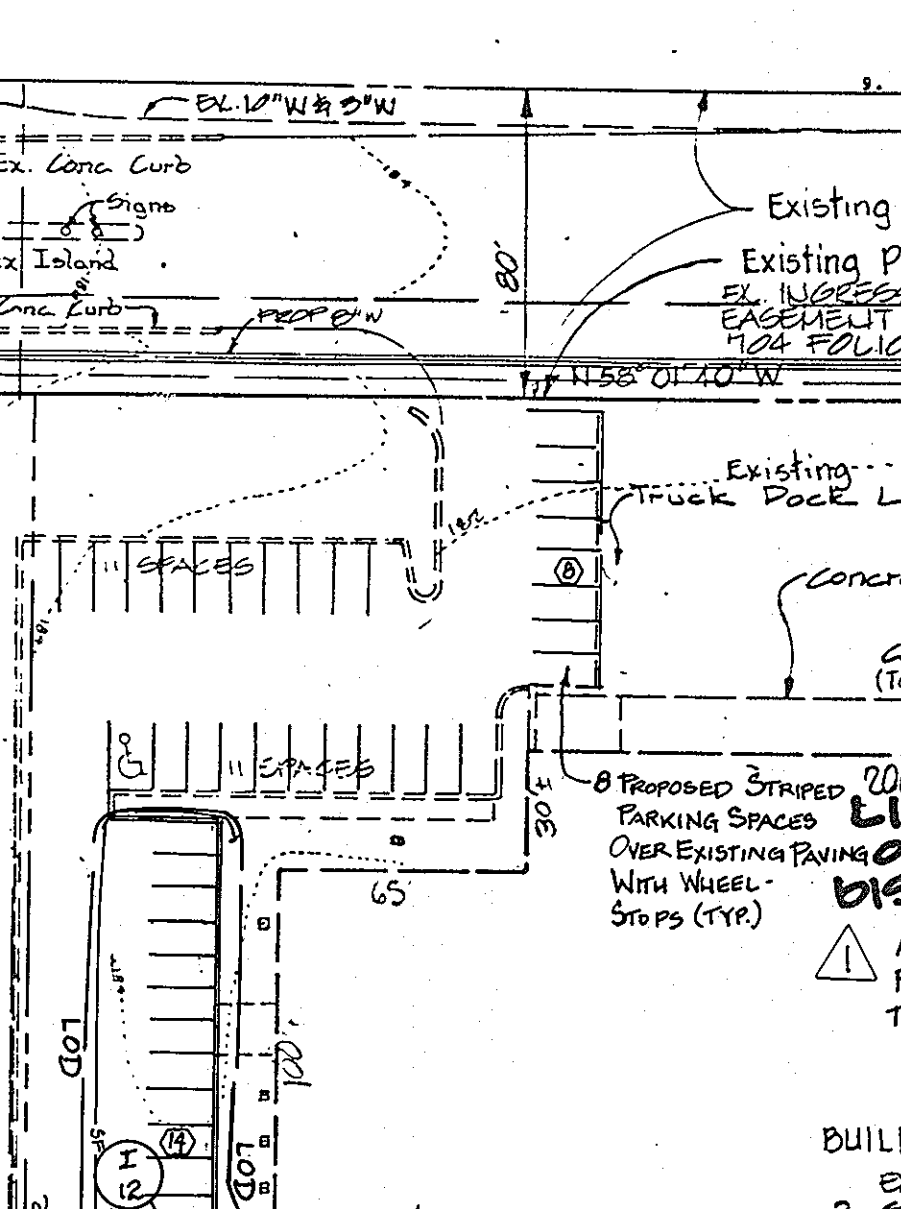 9.
EX. 10" W & 3" W
Ex. Conc Curb
Signs
Ex Island
Conc Curb
PROP 8" W
80'
Existing
Existing P
EX. INGRESS
EASEMENT
704 FOLIO
N 58° 01' 40" W
184
Existing
Truck Dock L
182
11 SPACES
8
Concr
(To
11 SPACES
30'±
8 PROPOSED STRIPED
PARKING SPACES
OVER EXISTING PAVING
WITH WHEEL-
STOPS (TYP.)
65'
1
LOD
100'
14
SF
I
12
LOD
BUIL